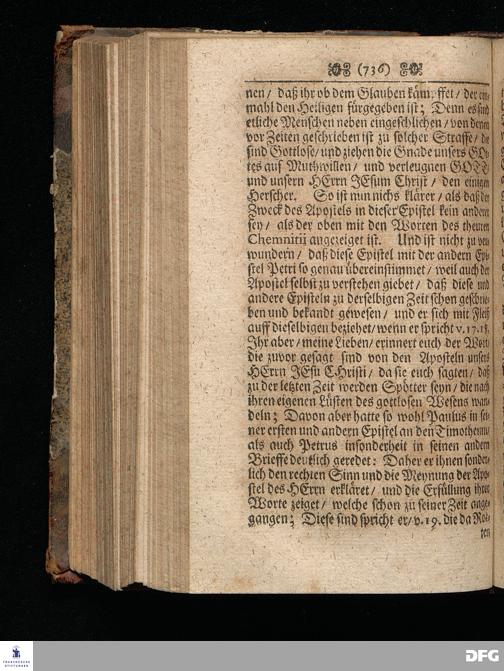 (736)
nen/ daß ihr ob dem Glauben kämpffet/ der ein-
mahl den Heiligen fürgegeben ist; Denn es sind
etliche Menschen neben eingeschlichen/ von denen
vor Zeiten geschrieben ist zu solcher Straffe/ die
sind Gottlose/ und ziehen die Gnade unsers GOt-
tes auf Muthwillen/ und verleugnen GOTT
und unsern HErrn JEsum Christ/ den einigen
Herscher. So ist nun nichs klärer/ als daß der
Zweck des Apostels in dieser Epistel kein anderer
sey/ als der oben mit den Worten des theuren
Chemnitii angezeiget ist. Und ist nicht zu ver-
wundern/ daß diese Epistel mit der andern Epi-
stel Petri so genau übereinstimmet/ weil auch der
Apostel selbst zu verstehen giebet/ daß diese und
andere Episteln zu derselbigen Zeit schon geschrie-
ben und bekandt gewesen/ und er sich mit Fleiß
auff dieselbigen beziehet/ wenn er spricht v. 17. 18.
Ihr aber/ meine Lieben/ erinnert euch der Wort/
die zuvor gesagt sind von den Aposteln unsers
HErrn JEsu CHristi/ da sie euch sagten/ daß
zu der letzten Zeit werden Spötter seyn/ die nach
ihren eigenen Lüsten des gottlosen Wesens wan-
deln; Davon aber hatte so wohl Paulus in sei-
ner ersten und andern Epistel an den Timotheum/
als auch Petrus insonderheit in seinen andern
Brieffe deutlich geredet: Daher er ihnen sonder-
lich den rechten Sinn und die Meynung der Apo-
stel des HErrn erkläret/ und die Erfüllung ihrer
Worte zeiget/ welche schon zu seiner Zeit ange-
gangen; Diese sind spricht er/ v. 19. die da Rot-
ten
FRANCKESCHE
STIFTUNGEN
DFG